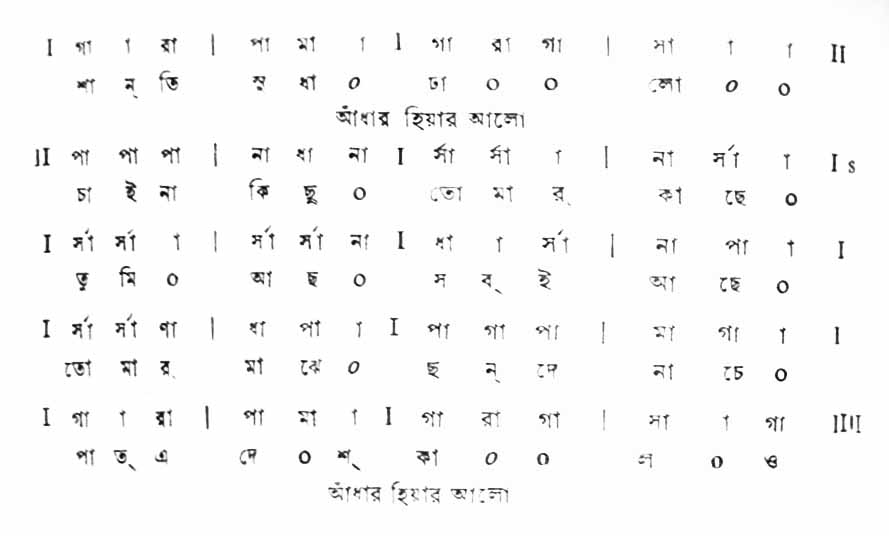 I গা া রা | পা মা া I গা রা গা | সা া া II
শা ন্ তি সু ধা ০ ঢা ০ ০ লো ০ ০
আঁধার হিয়ার আলো
II পা পা পা | না ধা না I র্সা র্সা া | না র্সা া I s
চা ই না কি ছু ০ তো মা র্ কা ছে ০
I র্সা র্সা া | র্সা র্সা না I ধা া র্সা | না পা া I
তু মি ০ আ ছ ০ স ব্ ই আ ছে ০
I র্সা র্সা ণা | ধা পা া I পা গা পা | মা গা া I
তো মা র্ মা ঝে ০ ছ ন্ দে না চে ০
I গা া রা | পা মা া I গা রা গা | সা া গা IIII
পা ত্ এ দে ০ শ্ কা ০ ০ ০ ও
আঁধার হিয়ার আলো